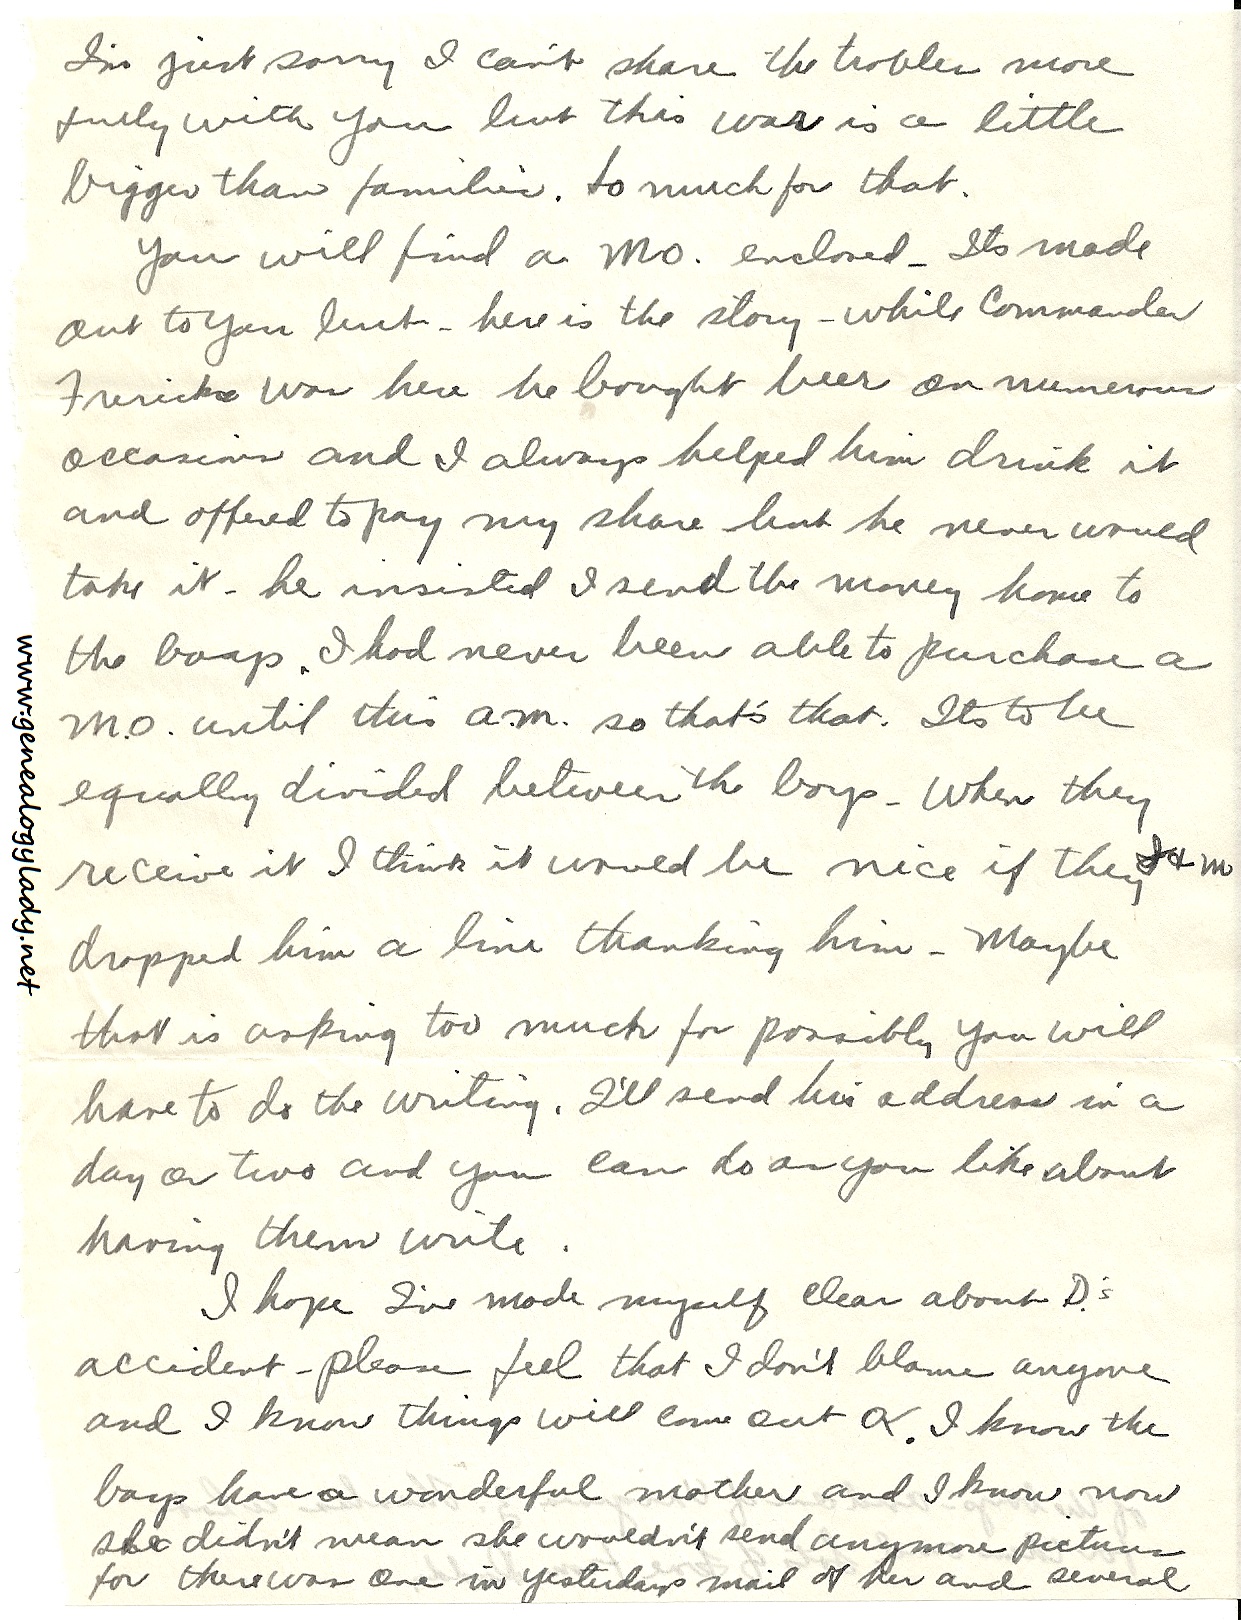 I'm just sorry I can't share the trobles more
fully with you but this war is a little
bigger than families. So much for that.
You will find a MO. enclosed - Its made
out to you but - here is the story - while Commander
Frericks was here he bought beer on numerous
occasions and I always helped him drink it
and offered to pay my share but he never would
take it - he insisted I send the money home to
the boays. I had never been able to purchase a
M.O. until this a.m. so that's that. Its to be
equally divided between the boys - When they
receive it I think it would be nice if they J & M
dropped him a line thanking him - Maybe
that is asking too much for possibly you will
have to do the writing. I'll send his address in a
day or two and you can do as you like about
having them write.
I hope I've made myself clear about D.'s
accident - please feel that I don't blame anyone
and I know things will come out OK. I know the
boys have a wonderful mother and I know now
she didn't mean she wouldn't send anymore pictures
for there was one in yesterdays mail of her and several
www.genealogylady.net